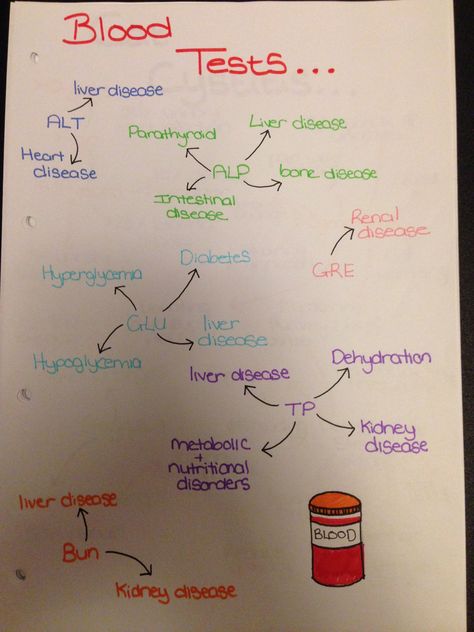 Blood
Tests...
liver disease
ALT
Heart
disease
Parathyroid
Liver disease
ALP
bone disease
Intestinal
disease
Renal
disease
GRE
Diabetes
Hyperglycemia
GLU
liver
disease
Hypoglycemia
Dehydration
liver disease
TP
Kidney
disease
metabolic
+
nutritional
disorders
liver disease
Bun
Kidney disease
BLOOD